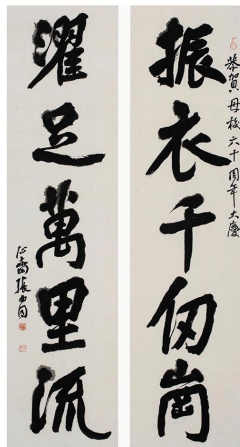 恭賀母校六十周年大慶
振衣千仞崗
濯足萬里流